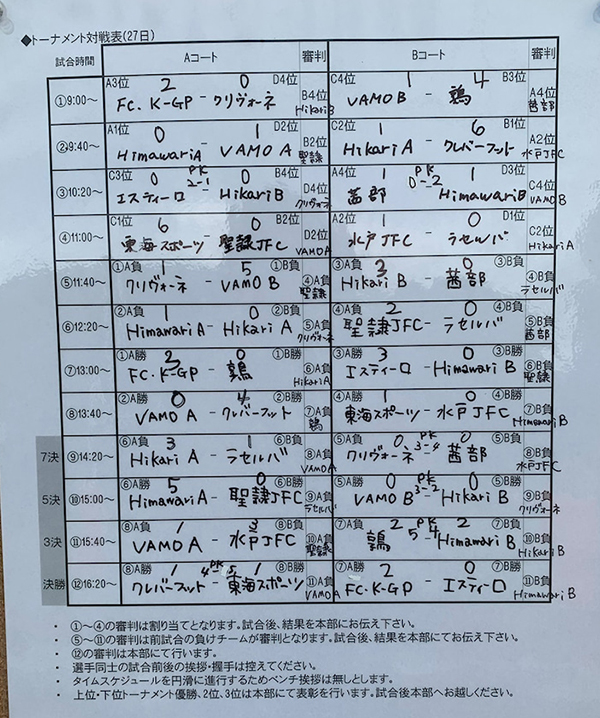 ◆トーナメント対戦表(27日)
試合時間 Aコート 審判 Bコート 審判
①9:00～ A3位 2 0 D4位 B4位 C4位 1 4 B3位 A4位
FC.K-GP - クリヴォーネ HikariB VAMO B - 鶉 茜部
②9:40～ A1位 0 1 D2位 B2位 C2位 1 6 B1位 A2位
Himawari A - VAMO A 聖隷 Hikari A - クレバーフット 水戸JFC
③10:20～ C3位 0 PK 0 B4位 D4位 A4位 1 PK 1 D3位 C4位
エスティーロ 2-1 HikariB クリヴォーネ 茜部 0-2 Himawari B VAMO B
④11:00～ C1位 6 0 B2位 D2位 A2位 1 0 D1位 C2位
東海スポーツ - 聖隷JFC VAMO A 水戸JFC - ラセルバ Hikari A
⑤11:40～ ①A負 1 5 ①B負 ④A負 ③A負 3 0 ③B負 ④B負
クリヴォーネ - VAMO B 聖隷 Hikari B - 茜部 ラセルバ
⑥12:20～ ②A負 1 0 ②B負 ⑤A負 ④A負 2 0 ④B負 ⑤B負
Himawari A - Hikari A クリヴォーネ 聖隷JFC - ラセルバ 茜部
⑦13:00～ ①A勝 3 0 ①B勝 ⑥A負 ③A勝 3 0 ③B勝 ⑥B負
FC.K-GP - 鶉 HikariA エスティーロ - Himawari B 聖隷
⑧13:40～ ②A勝 0 4 ②B勝 ⑦A負 ④A勝 1 0 ④B勝 ⑦B負
VAMO A - クレバーフット 鶉 東海スポーツ - 水戸JFC Himawari B
7決 ⑨14:20～ ⑥A負 3 1 ⑥B負 ⑧A負 ⑤A負 0 PK 0 ⑤B負 ⑧B負
Hikari A - ラセルバ VAMO A クリヴォーネ 3-4 茜部 水戸JFC
5決 ⑩15:00～ ⑥A勝 5 0 ⑥B勝 ⑨A負 ⑤A勝 0 PK 0 ⑤B勝 ⑨B負
Himawari A - 聖隷JFC ラセルバ VAMO B 3-2 Hikari B クリヴォーネ
3決 ⑪15:40～ ⑧A負 1 3 ⑧B負 ⑩A負 ⑦A負 2 PK 2 ⑦B負 ⑩B負
VAMO A - 水戸JFC 聖隷 鶉 5-4 Himawari B Hikari B
決勝 ⑫16:20～ ⑧A勝 1 PK 1 ⑧B勝 ⑪A負 ⑦A勝 2 0 ⑦B勝 ⑪B負
クレバーフット 4-5 東海スポーツ VAMO A FC.K-GP - エスティーロ Himawari B
・ ①～④の審判は割り当てとなります。試合後、結果を本部にお伝え下さい。
・ ⑤～⑪の審判は前試合の負けチームが審判となります。試合後、結果を本部にてお伝え下さい。
・ ⑫の審判は本部にて行います。
・ 選手同士の試合前後の挨拶・握手は控えてください。
・ タイムスケジュールを円滑に進行するためベンチ挨拶は無しとします。
・ 上位・下位トーナメント優勝、2位、3位は本部にて表彰を行います。試合後本部へお越しください。